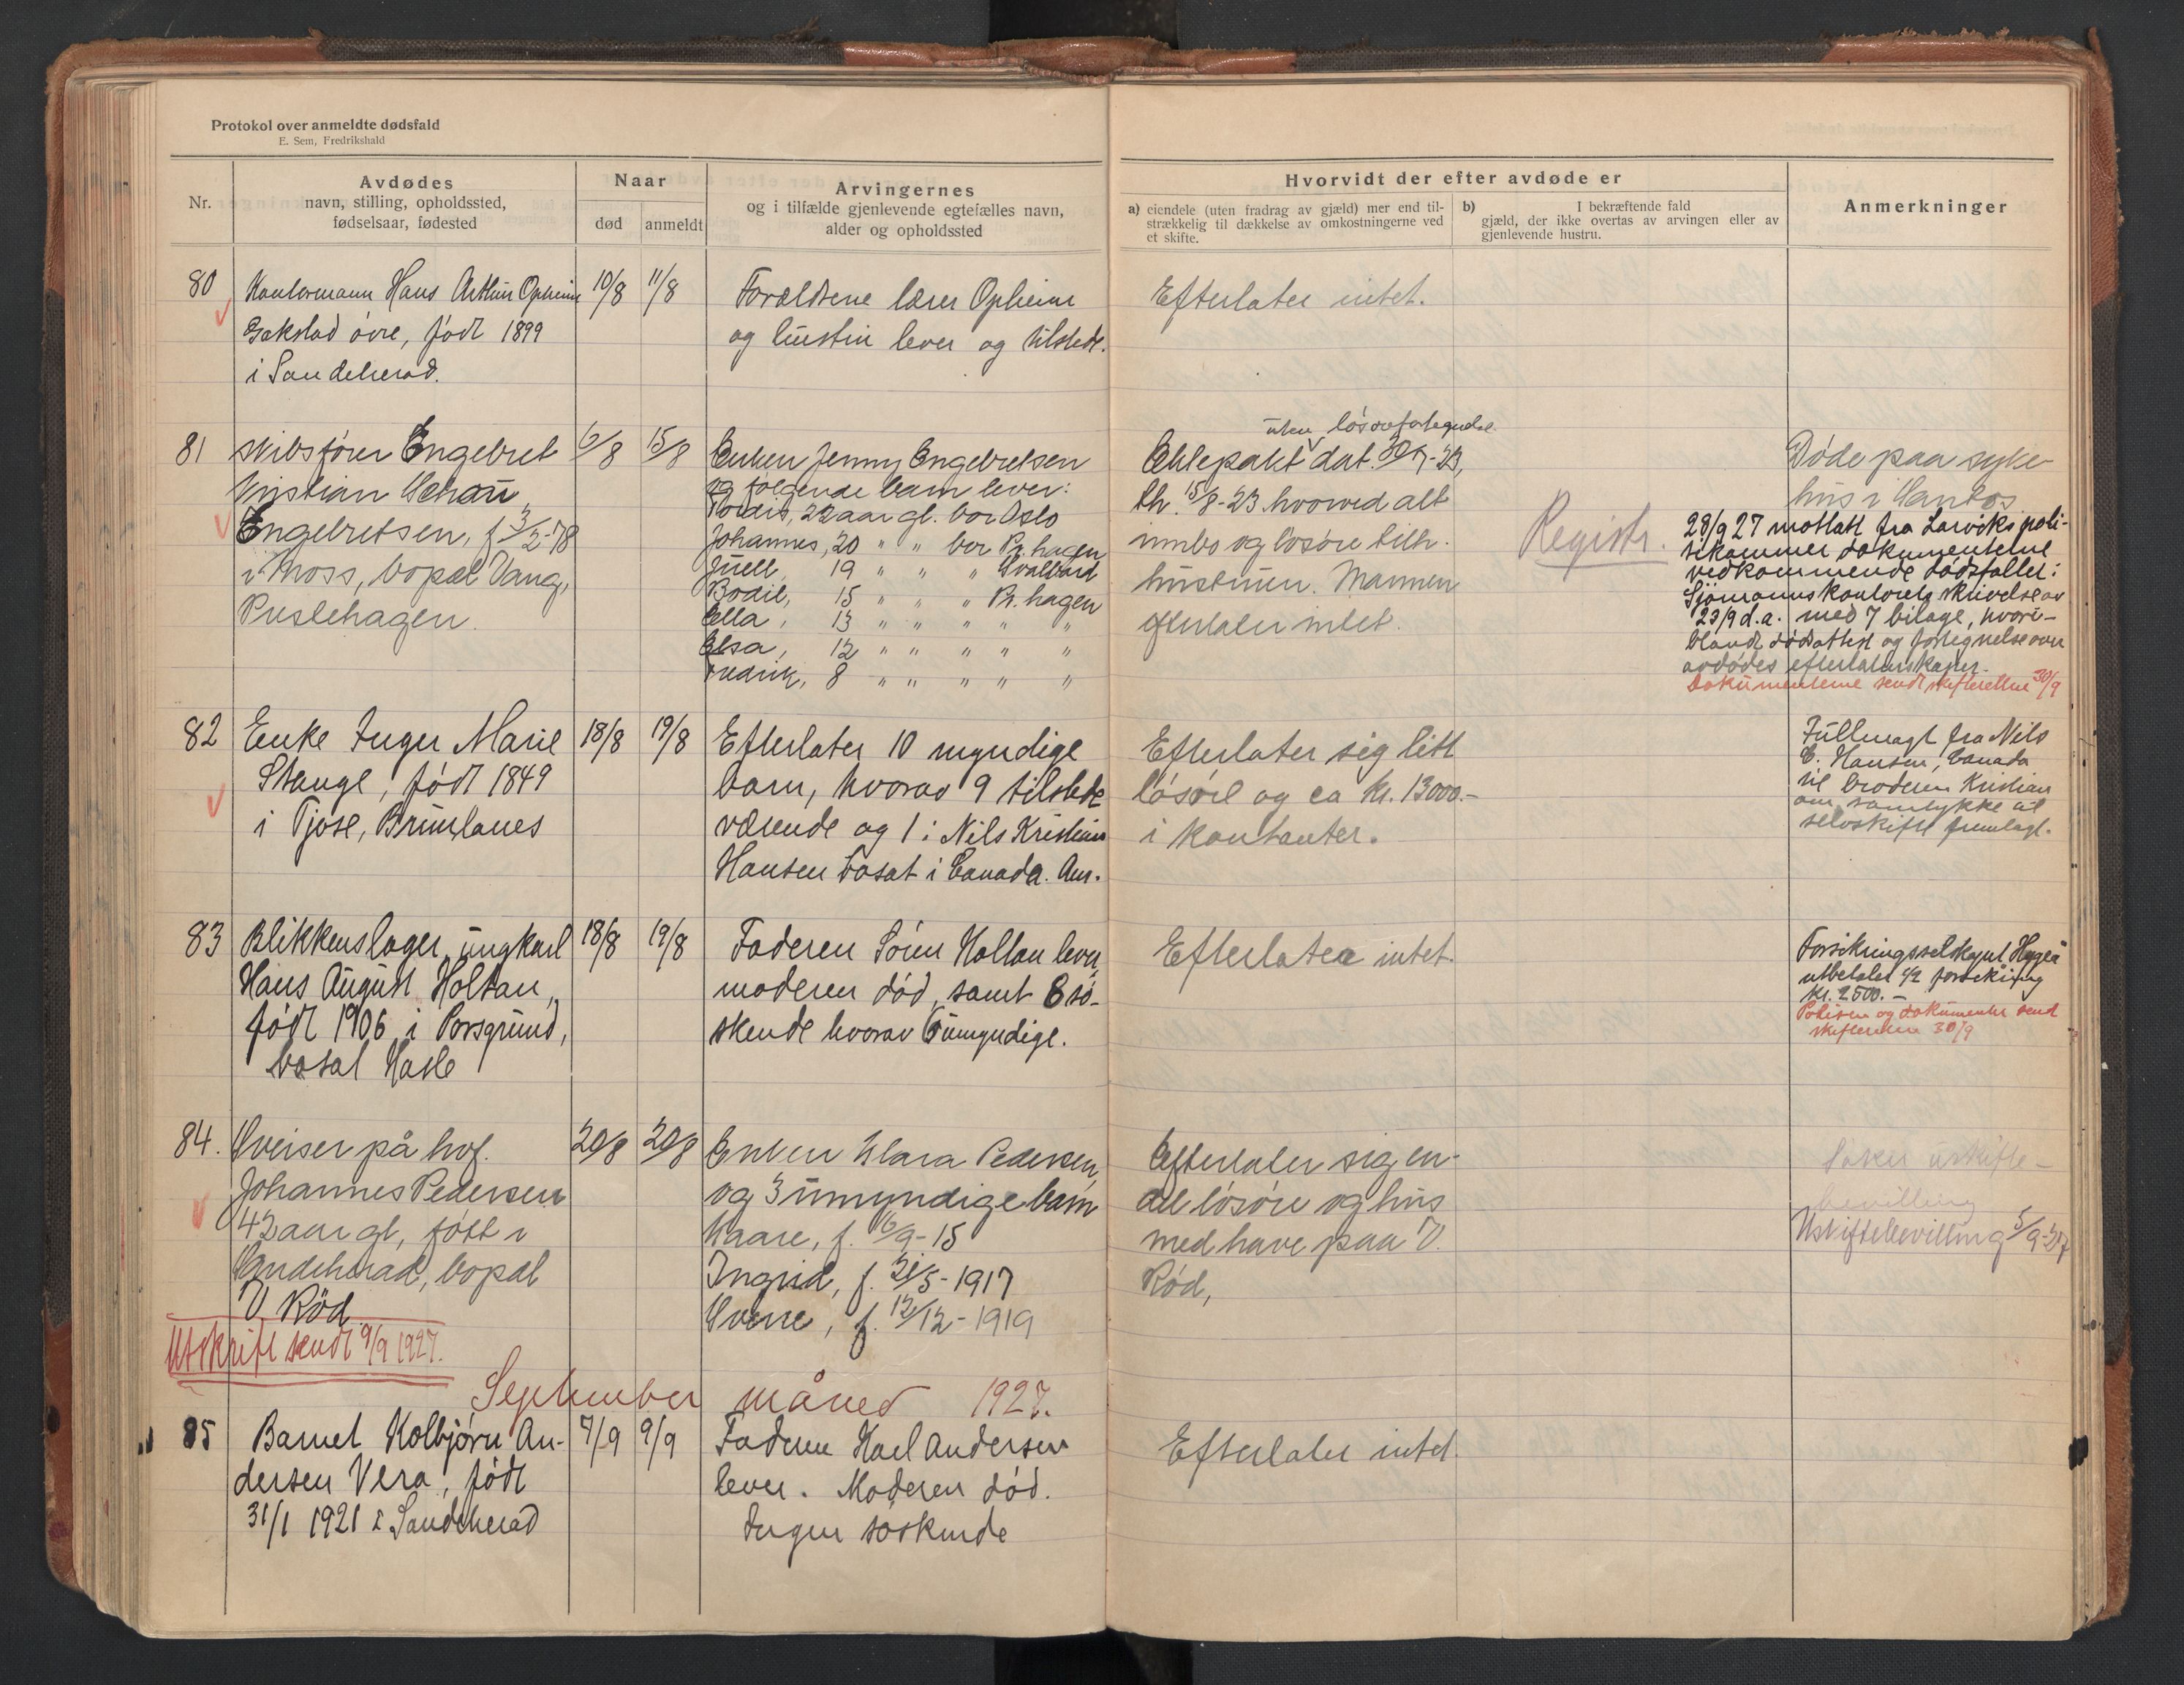 Protokol over anmeldte dødsfald
E. Sem, Fredrikshald
Nr.
Avdødes
navn, stilling, opholdssted,
fødselsaar, fødested
Naar
død
anmeldt
Arvingernes
og i tilfælde gjenlevende egtefælles navn,
alder og opholdssted
Hvorvidt der efter avdøde er
a) eiendele (uten fradrag av gjæld) mer end til-
strækkelig til dækkelse av omkostningerne ved
et skifte.
b) I bekræftende fald
gjæld, der ikke overtas av arvingen eller av
gjenlevende hustru.
Anmerkninger
80
Kontormann Hans Arthur Opheim
Gokstad øvre, født 1899
i Sandeherad.
10/8
11/8
Forældrene lærer Opheim
og hustru lever og tilstede.
Efterlater intet.
81
Skibsfører Engebret
Kristian Schau
Engebretsen, f. 3/2-78
i Moss, bopæl Vang,
Preslehagen.
6/8
15/8
Enken Jenny Engebretsen
og følgende barn lever:
Tordis, 22 aar gl. bor Oslo
Johannes, 20 " " bor Pr. hagen
Juell, 19 " " " Svalbard
Bodil, 15 " " " Pr. hagen
Ella, 13 " " " " "
Elsa, 12 " " " " "
Fredrik, 8 " " " " "
uten løsørefortegnelse
Ektepakt dat.
th. 15/8-23 hvorved alt
innbo og løsøre tilh.
hustruen. Mannen
efterlater intet.
Registr.
Døde paa syke-
hus i Santos
28/9 27 mottatt fra Larviks poli-
tikammer dokumenterne
vedkommende dødsfallet:
Sjømannskontorets skrivelse av
23/9 d.a. med 7 bilage, hvori-
blandt dødsattest og fortegnelse over
avdødes efterlatenskaper.
Dokumenterne sendt skifteretten 30/9
82
Enke Inger Marie
Stange, født 1849
i Tjose, Brunlanes
18/8
19/8
Efterlater 10 myndige
barn, hvorav 9 tilstede
værende og 1: Nils Kristian
Hansen bosat i Canada. Am.
Efterlater sig litt
løsøre og ca kr. 13000.-
i kontanter.
Fullmagt fra Nils
C. Hansen, Canada
til broderen Kristian
om samtykke til
selvskifte fremlagt.
83
Blikkenslager, ungkarl
Hans August Holtan,
født 1906 i Porsgrund,
bosat Hasle
18/8
19/8
Faderen Søren Holtan lever,
moderen død, samt 8 sø-
skende hvorav 6 umyndige.
Efterlater intet.
Forsikringsselskapet Hygea
utbetalet 1/2 forsikring
kr. 2500.-
Polisen og dokumenter sendt
skifteretten 30/9
84.
Sveiser på hvf.
Johannes Pedersen
42 aar gl, født i
Sandeherad, bopæl
V. Rød
20/8
20/8
Enken Klara Pedersen,
og 3 umyndige barn
Kaare, f. 6/9-15
Ingrid, f. 21/5-1917
Sverre, f. 12/12-1919
Efterlater sig en-
del løsøre og hus
med have paa V.
Rød,
Søker uskifte-
bevilling
Uskiftebevilling 5/9-27
Utskrift sendt 9/9 1927.
September måned 1927.
85
Barnet Kolbjørn An-
dersen Vera, født
31/1 1921 i Sandeherad
7/9
9/9
Faderen Karl Andersen
lever. Moderen død.
Ingen søskende
Efterlater intet.